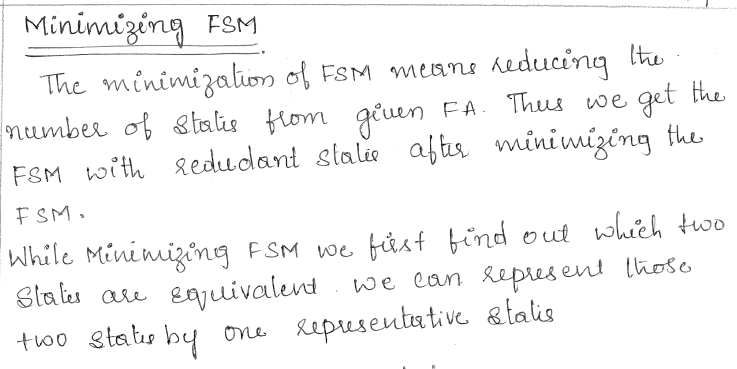 Minimizing FSM.
The minimization of FSM means reducing the
number of States from given FA. Thus we get the
FSM with redudant state after minimizing the
FSM.
While Minimizing FSM we first find out which two
States are equivalent. we can represent those
two states by one representative states